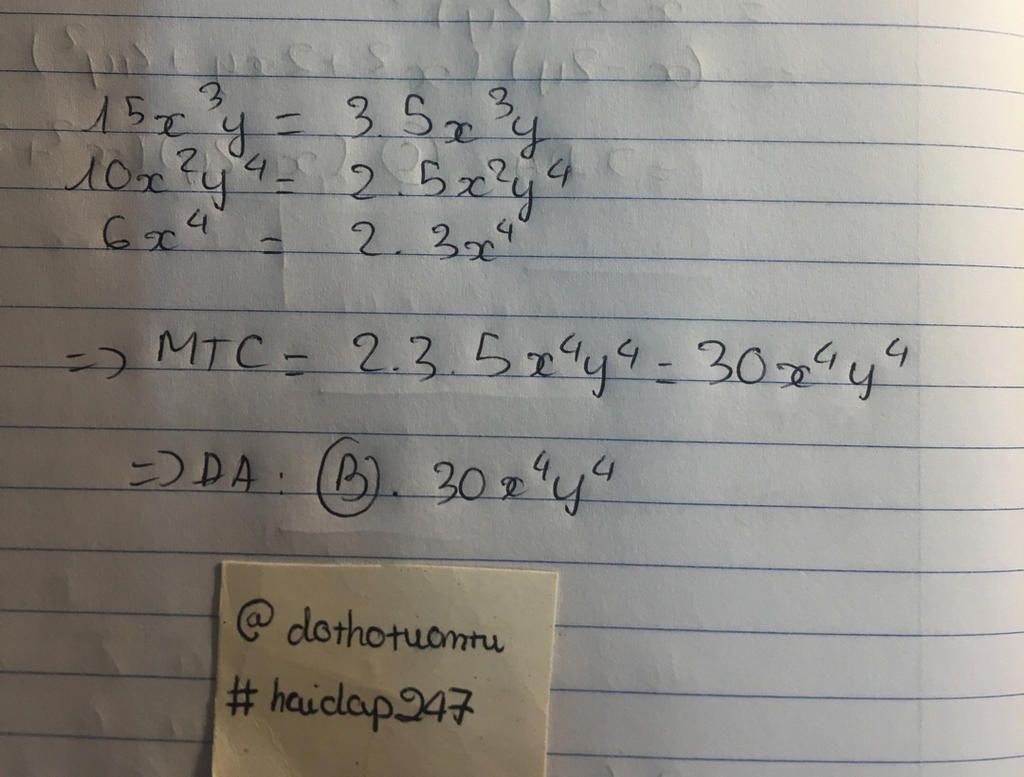 15x³y = 3.5x³y
10x²y⁴ = 2.5x²y⁴
6x⁴ = 2.3x⁴
=> MTC = 2.3.5x⁴y⁴ = 30x⁴y⁴
=> DA: (B). 30x⁴y⁴
@ dothotuantu
# hoidap247